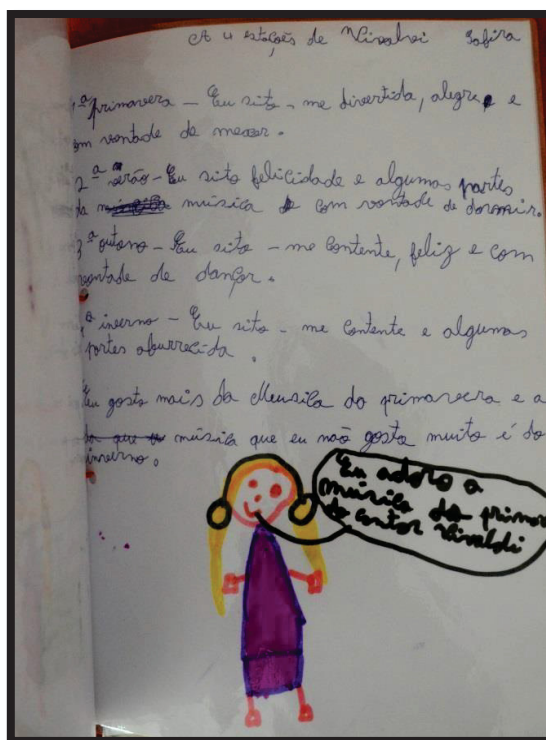 A 4 estações de Vivalvi Safira
1ª primavera - Eu sito - me divertida, alegre e
em vontade de mexer.
2ª verão - Eu sito felicidade e algumas partes
da música com vontade de dormir.
3ª outono - Eu sito - me contente, feliz e com
vontade de dançar.
ª inverno - Eu sito - me contente e algumas
partes aburrecida.
Eu gosto mais da Meusica do primavera e a
música que eu não gosto muito é do
inverno.
Eu adoro a
música da primav
do cantor Vivaldi